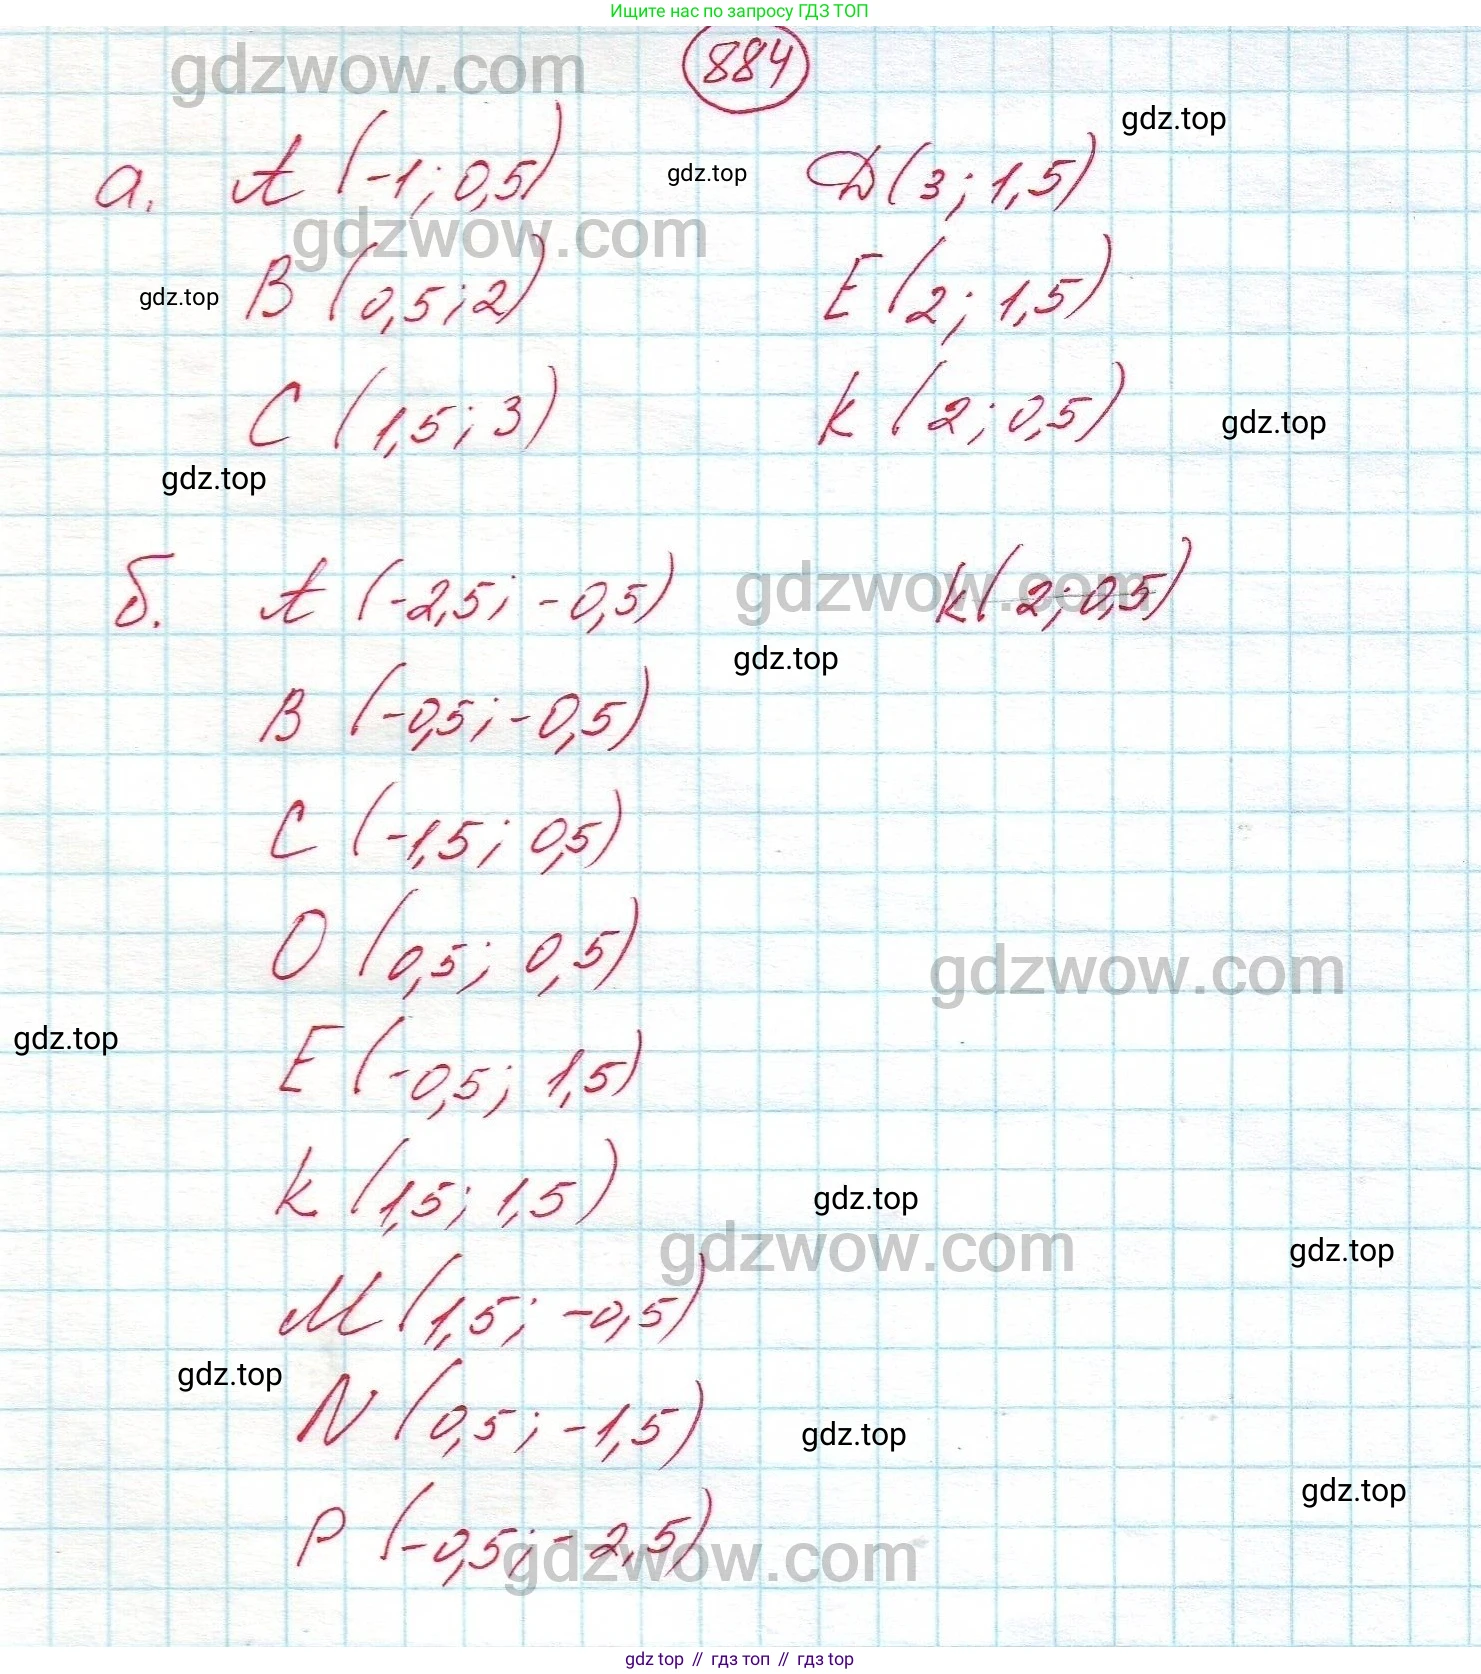 Ищите нас по запросу ГДЗ ТОП
884
gdzwow.com
gdz.top
а. A (-1; 0,5) gdz.top D (3; 1,5)
gdzwow.com
gdz.top B (0,5; 2) E (2; 1,5)
C (1,5; 3) K (2; 0,5) gdz.top
gdz.top
б. A (-2,5; -0,5) gdzwow.com K (2; 0,5)
gdz.top
B (-0,5; -0,5)
C (-1,5; 0,5)
O (0,5; 0,5) gdzwow.com
gdz.top
E (-0,5; 1,5)
K (1,5; 1,5) gdz.top
gdzwow.com gdz.top
M (1,5; -0,5)
gdz.top
N (0,5; -1,5) gdz.top
gdz.top
P (-0,5; -2,5) gdzwow.com
gdz.top // гдз топ // гдз top